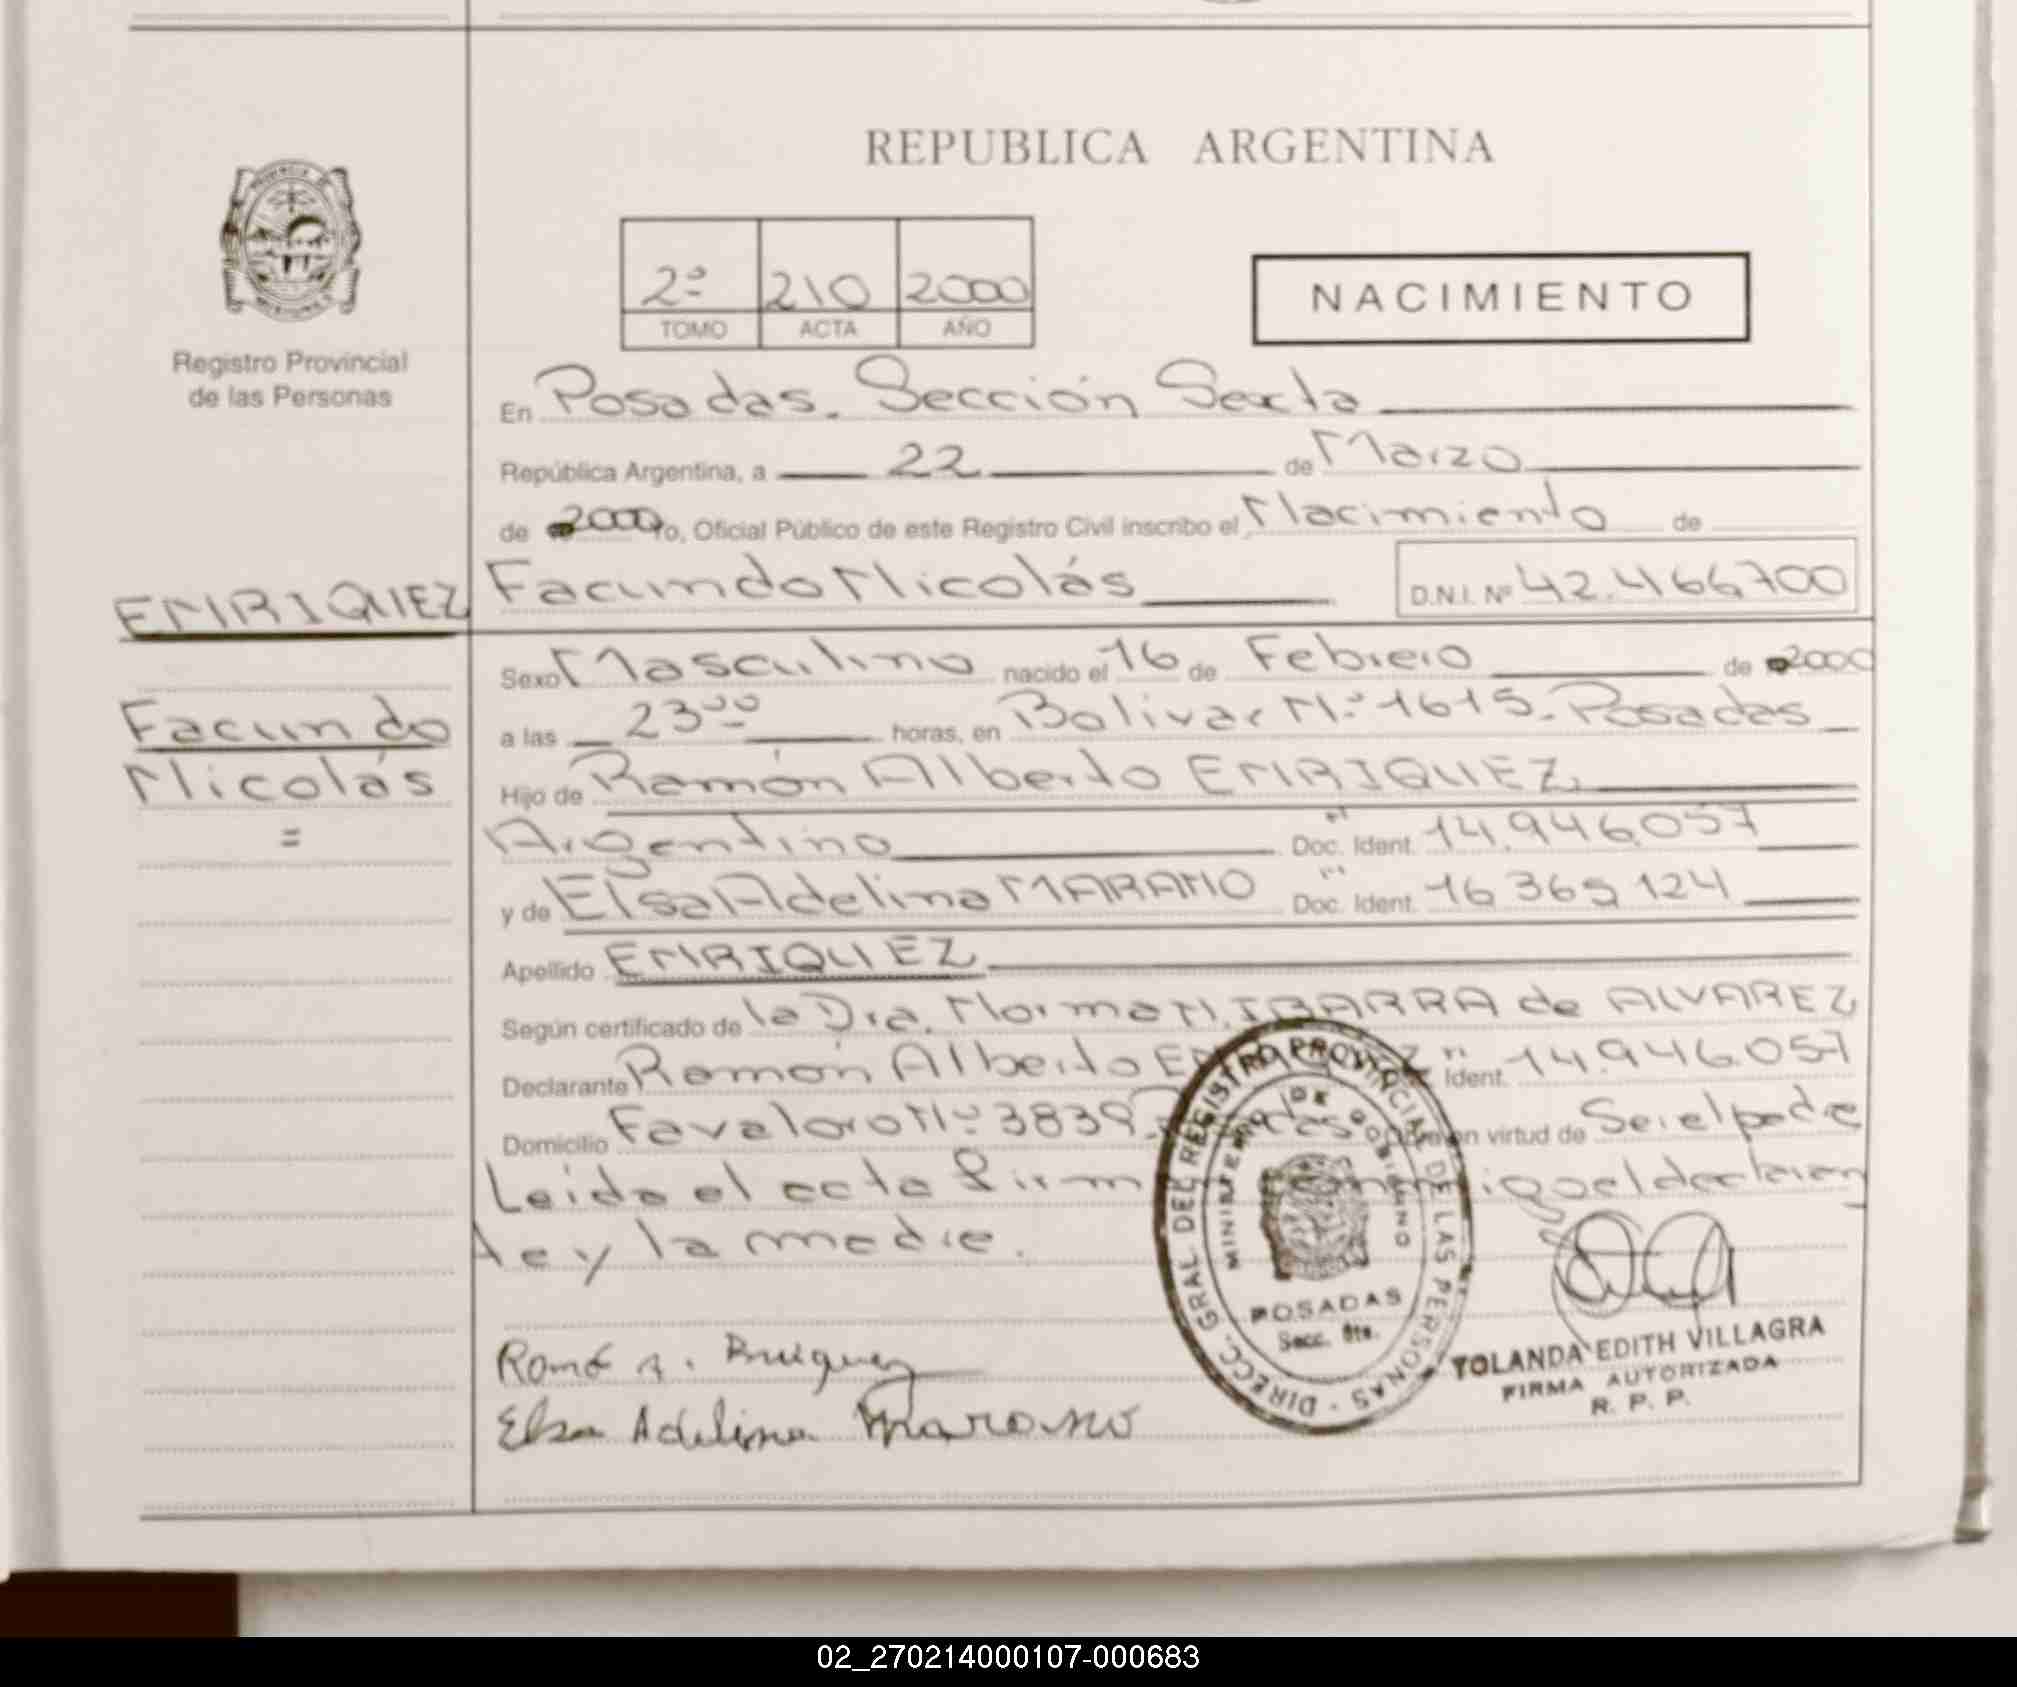 REPUBLICA ARGENTINA
2º 210 2000
TOMO ACTA AÑO
NACIMIENTO
Registro Provincial
de las Personas
En Posadas. Sección Sexta
República Argentina, a 22 de Marzo
de 2000 Yo, Oficial Público de este Registro Civil inscribo el Nacimiento de
ENRIQUEZ
Facundo Nicolás D.N.I. Nº 42.466.700
Facundo
Nicolás
=
Sexo Masculino nacido el 16 de Febrero de 2000
a las 23ºº horas, en Bolivar Nº 1615. Posadas
Hijo de Ramón Alberto ENRIQUEZ
Argentino Doc. Ident. 14.946.057
y de Elsa Adelina MARANO Doc. Ident. 16 365 124
Apellido ENRIQUEZ
Según certificado de la Dra. Norma N. IBARRA de ALVAREZ
Declarante Ramón Alberto Ident. 14.946.057
Domicilio Favaloro Nº 3839 en virtud de Ser el padre
Leida el acta firm conmigo el declaran
te y la madre.
Ramó A. Enriquez
Elsa Adelina Marano
DIRECC. GRAL. DEL REGISTRO PROVINCIAL DE LAS PERSONAS
MINISTERIO DE GOBIERNO
POSADAS
Secc. 6ta.
YOLANDA EDITH VILLAGRA
FIRMA AUTORIZADA
R. P. P.
02_270214000107-000683